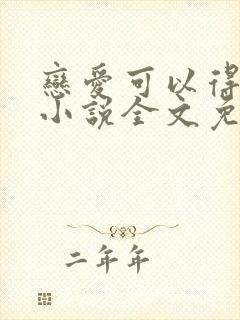 戀愛可以得
小說全文免
二年年